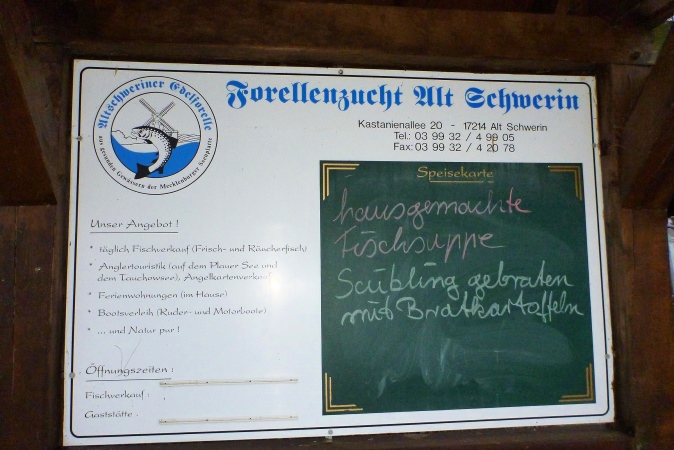 Altschweriner Edelforelle
aus gesunden Gewässern der Mecklenburger Seenplatte
Forellenzucht Alt Schwerin
Kastanienallee 20 - 17214 Alt Schwerin
Tel.: 03 99 32 / 4 99 05
Fax: 03 99 32 / 4 20 78
Speisekarte
hausgemachte
Fischsuppe
Saibling gebraten
mit Bratkartoffeln
Unser Angebot !
* täglich Fischverkauf (Frisch- und Räucherfisch)
* Anglertouristik (auf dem Plauer See und
dem Tauchowsee), Angelkartenverkauf
* Ferienwohnungen (im Hause)
* Bootsverleih (Ruder- und Motorboote)
* ... und Natur pur !
Öffnungszeiten :
Fischverkauf :
Gaststätte :